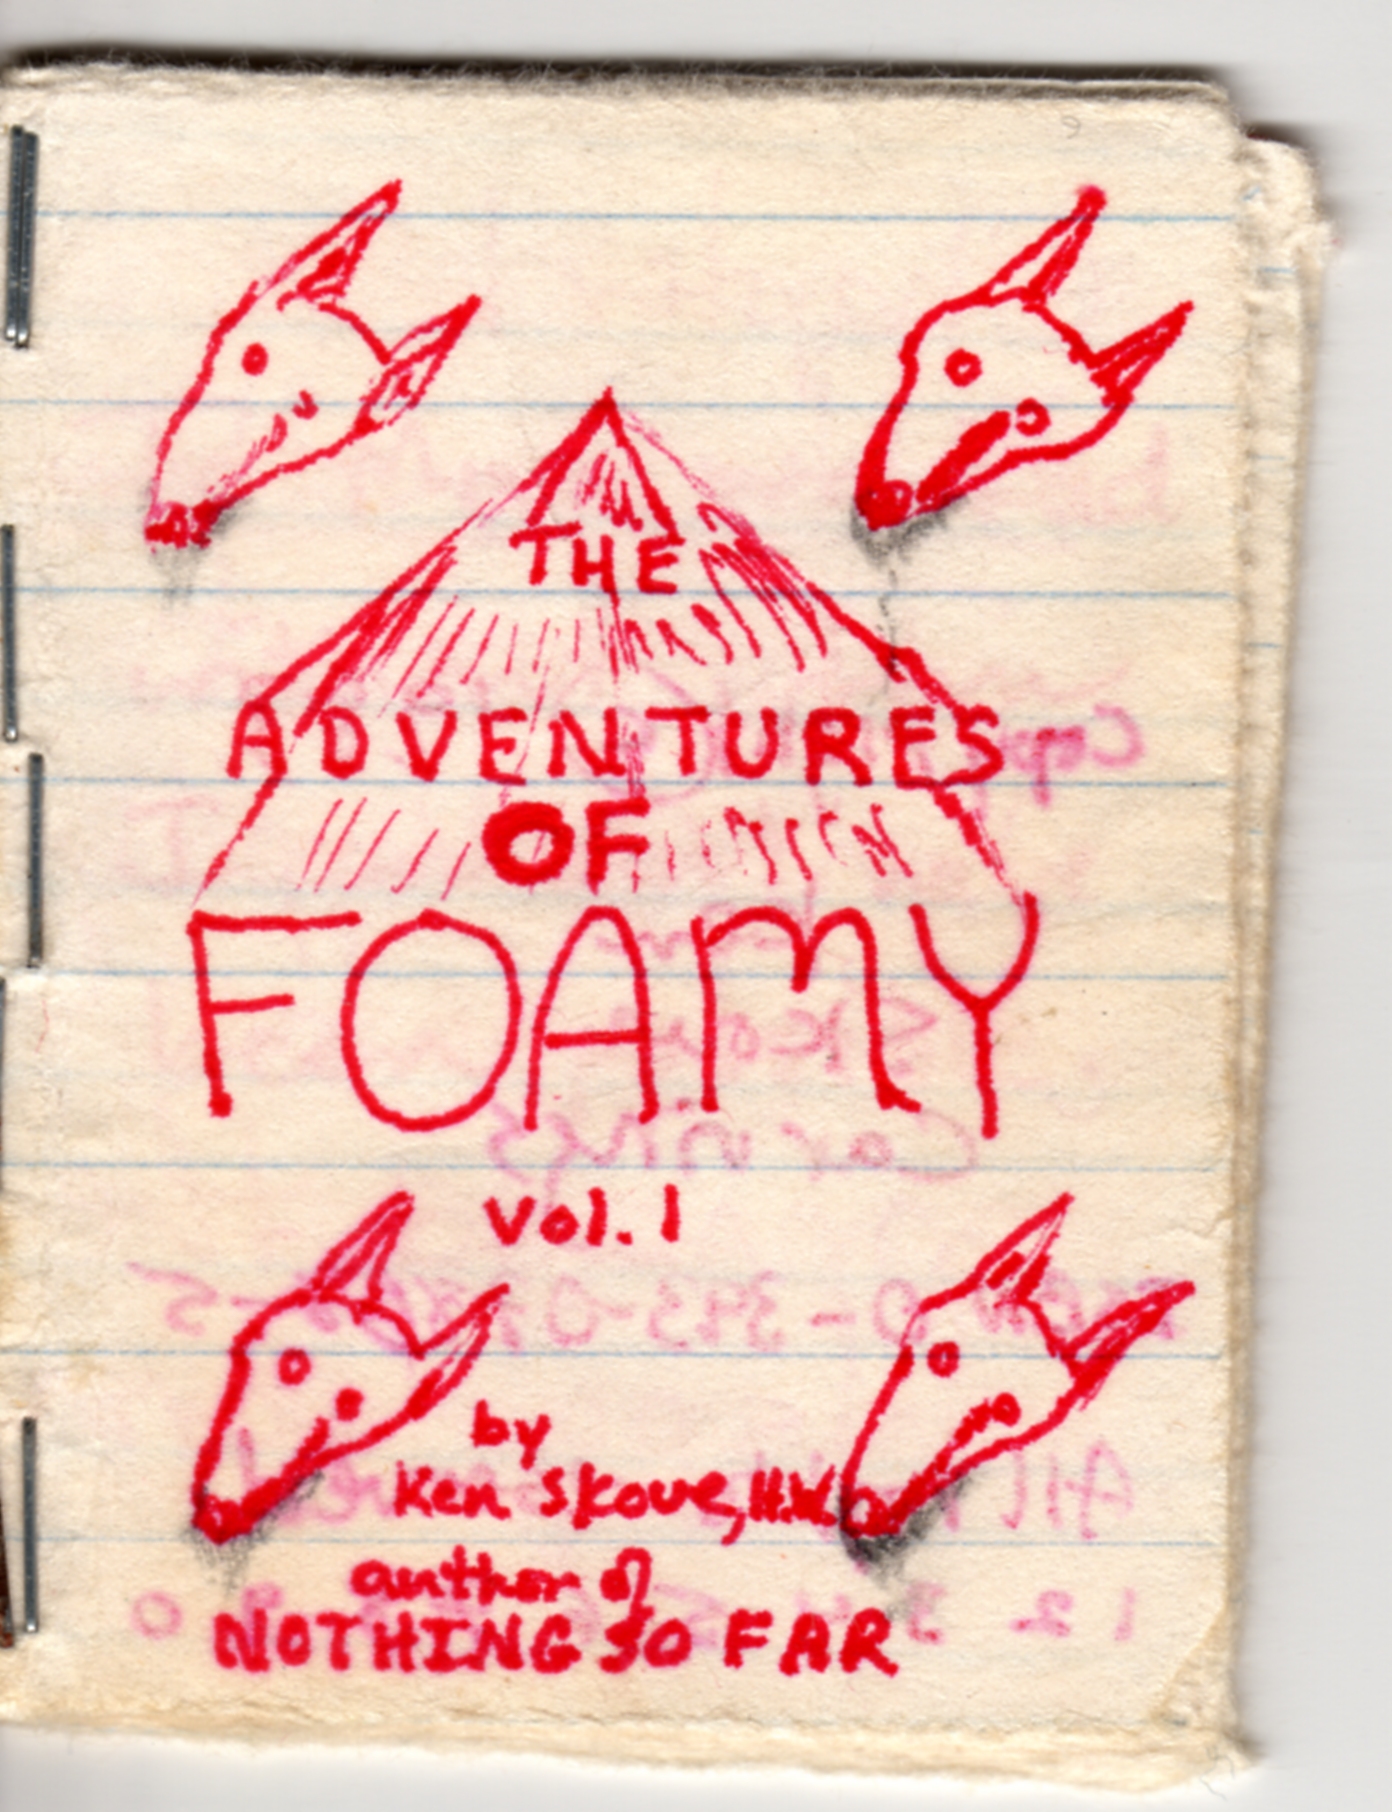 THE
ADVENTURES
OF
FOAMY
Vol. 1
by
Ken Skove, H.W.
author of
NOTHING SO FAR